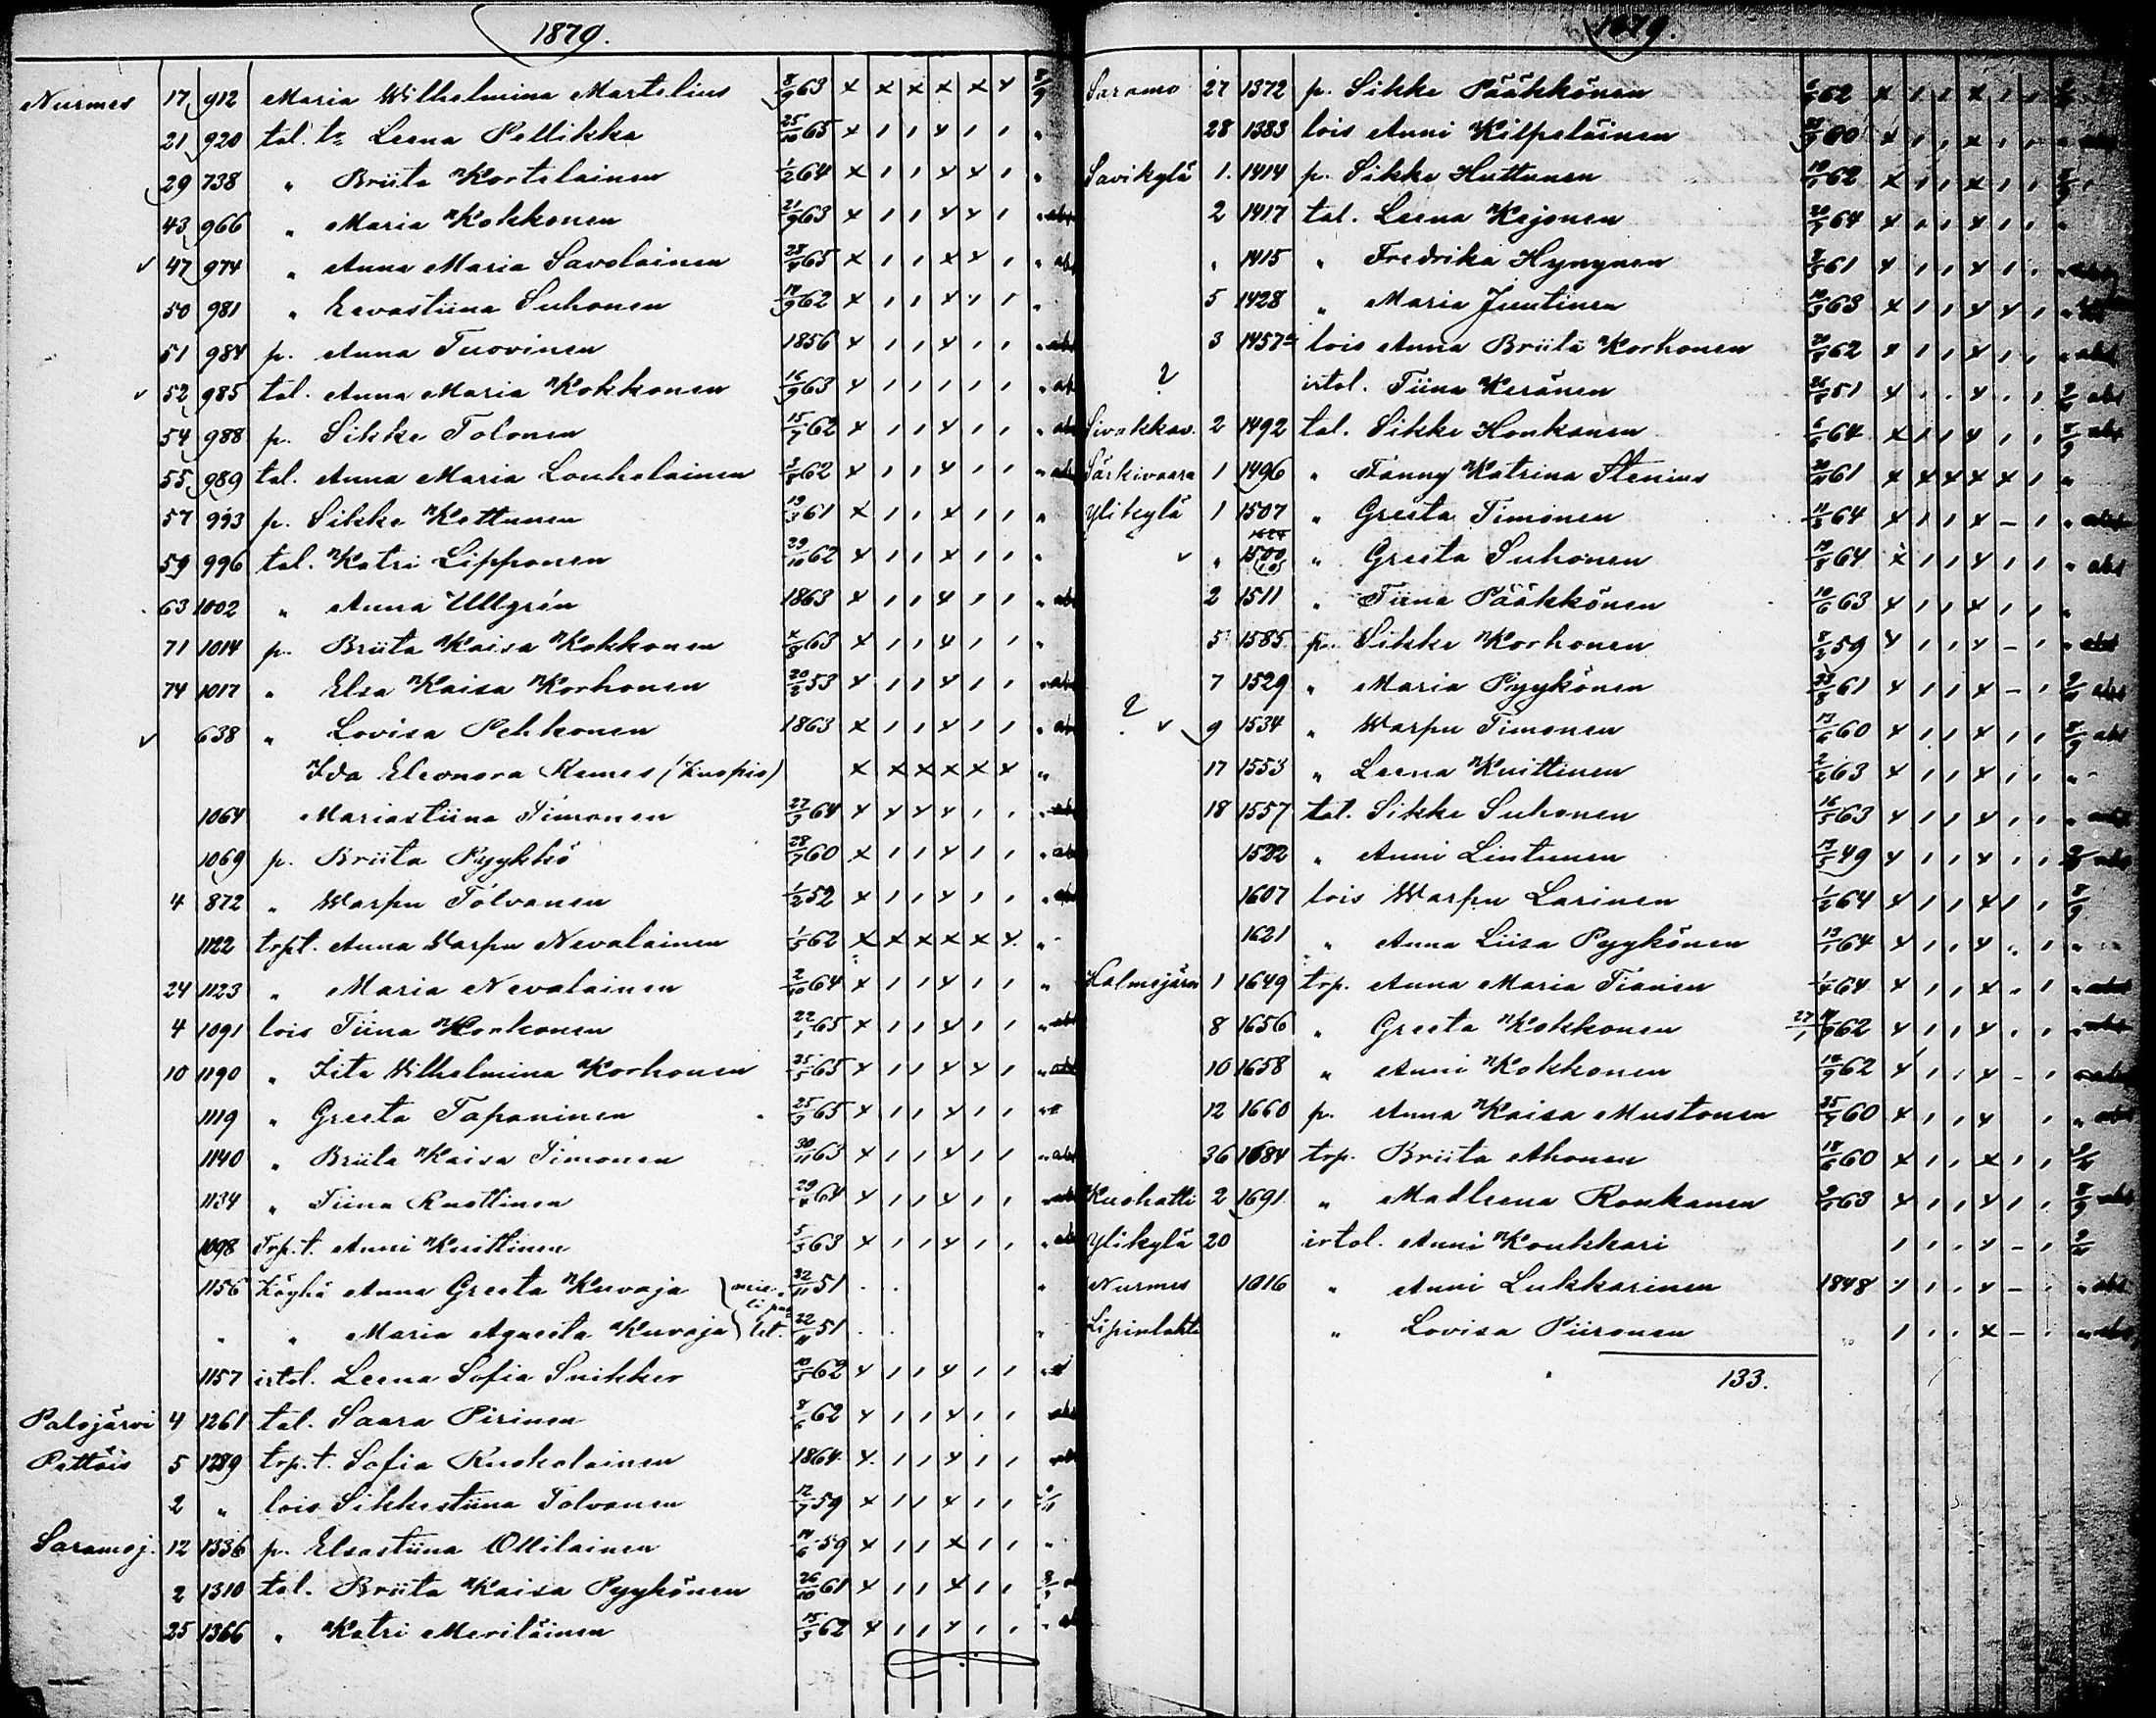 1879.
Nurmes 17 912 Maria Wilhelmina Martelius 8/9 63 x x x x x x 8/9
21 920 tal. tr Leena Pellikka 25/10 65 x 1 1 x 1 1 "
29 738 " Briita Kortelainen 1/2 64 x 1 1 x x 1 "
43 966 " Maria Kokkonen 21/9 63 x 1 1 x x 1 "
v 47 974 " Anna Maria Savolainen 65 x 1 1 x x 1 "
50 981 " Eevastiina Suhonen 62 x 1 1 x 1 1 "
51 984 p. Anna Tuovinen 1856 x 1 1 x 1 1 "
v 52 985 tal. Anna Maria Kokkonen 16/9 63 x 1 1 1 1 1 "
54 988 p. Sikke Tolonen 15/7 62 x 1 1 x 1 1 "
55 989 tal. Anna Maria Louhelainen 62 x 1 1 x 1 1 "
57 993 p. Sikke Kettunen 19/3 61 x 1 1 x 1 1 "
59 996 tal. Katri Lipponen 29/10 62 x 1 1 x 1 1 "
63 1002 " Anna Ullgrén 1863 x 1 1 x 1 1 "
71 1014 p. Briita Kaisa Kokkonen 63 x 1 1 x 1 1 "
74 1017 " Elsa Kaisa Korhonen 20/2 53 x 1 1 x 1 1 "
v 638 " Lovisa Pehkonen 1863 x 1 1 x 1 1 "
Ida Eleonora Remes (Kuopio) x x x x x x "
1064 Mariastiina Timonen 64 x x x x 1 1 "
1069 p. Briita Pyykkö 28/7 60 x 1 1 x 1 1 "
4 872 " Warpu Tolvanen 1/2 52 x 1 1 x 1 1 "
1122 trpt. Anna Warpu Nevalainen 1/5 62 x x x x x x "
24 1123 " Maria Nevalainen 2/10 64 x 1 1 x 1 1 "
4 1091 lois Tiina Korhonen 22/1 65 x 1 1 x 1 1 "
10 1190 " Iita Wilhelmina Korhonen 25/5 65 x 1 1 x x 1 "
1119 " Greeta Tapaninen 25/3 65 x 1 1 x 1 1 "
1140 " Briita Kaisa Timonen 30/11 63 x 1 1 x 1 1 "
1134 " Tiina Ruottinen 64 x 1 1 x 1 1
1098 Trp.t. Anni Knittinen 5/3 63 x 1 1 x 1 1 "
1156 Köyhä Anna Greeta Kuvaja 22/11 51 "
" " Maria Agneeta Kuvaja 22/11 51 "
1157 irtol. Leena Sofia Snikker 62 x 1 1 x 1 1 "
Palojärvi 4 1261 tal. Saara Pirinen 8/6 62 x 1 1 x 1 1
Pettäis 5 1289 trp.t. Sofia Ruokolainen 1864 x 1 1 x 1 1
2 " lois Sikkestiina Tolvanen 12/7 59 x 1 1 x 1 1
Saramoj. 12 1336 p. Elsastiina Ollilainen 14/6 59 x 1 1 x 1 1 "
2 1310 tal. Briita Kaisa Pyykönen 26/10 61 x 1 1 x 1 1
25 1366 " Katri Meriläinen 15/3 62 x 1 1 x 1 1 "
1879.
Saramo 27 1372 p. Sikke Pääkkönen 62 x 1 1 x 1 1
28 1383 lois Anni Kilpeläinen 60 x 1 1 x 1 1 "
Savikylä 1. 1414 p. Sikke Huttunen 62 x 1 1 x 1 1
2 1417 tal. Leena Kejonen 64 x 1 1 x 1 1 "
" 1415 " Fredrika Hynynen 61 x 1 1 x 1 1 "
5 1428 " Maria Juutinen 63 x 1 1 x x 1 "
3 1457 lois Anna Briita Korhonen 62 x 1 1 x 1 1 " abs
? irtol. Tiina Keränen 51 x 1 1 x 1 1 abs
Sivakkav. 2 1492 tal. Sikke Honkanen 64 x 1 1 x 1 1 abs
Särkivaara 1 1496 " Fanny Katrina Stenius 61 x x x x x 1 "
Ylikylä 1 1507 " Greeta Timonen 64 x 1 1 x - 1 "
v " 1500 " Greeta Suhonen 19/8 64 x 1 1 x 1 1 " abs
2 1511 " Tiina Pääkkönen 10/6 63 x 1 1 x 1 1 "
5 1585 p. Sikke Korhonen 8/2 59 x 1 1 x - 1 "
7 1529 " Maria Pyykönen 61 x 1 1 x - 1
? v 9 1534 " Warpu Timonen 60 x 1 1 x 1 1 8/9 abs
17 1553 " Leena Knittinen 63 x 1 1 x 1 1 "
18 1557 tal. Sikke Suhonen 16/5 63 x 1 1 x 1 1 "
1522 " Anni Lintunen 49 x 1 1 x 1 1
1607 lois Warpu Larinen 1/2 64 x 1 1 x 1 1 8/9
1621 " Anna Liisa Pyykönen 64 x 1 1 x 1 1 "
Kalmejärvi 1 1649 trp. Anna Maria Tiainen 64 x 1 1 x 1 1 "
8 1656 " Greeta Kokkonen 27/1 62 x 1 1 x 1 1 "
10 1658 " Anni Kokkonen 62 x 1 1 x - 1 "
12 1660 p. Anna Kaisa Mustonen 60 x 1 1 x 1 "
36 1684 trp. Briita Ahonen 18/6 60 x 1 1 x 1 1
Kuohatti 2 1691 " Madleena Ronkanen 63 x 1 1 x 1 1 8/9
Ylikylä 20 irtol. Anni Koukkari 1 1 1 x - 1
Nurmes 1016 " Anni Lukkarinen 1848 1 1 1 x - 1 "
Lipinlahti " Lovisa Piironen 1 1 1 x - 1 "
133.